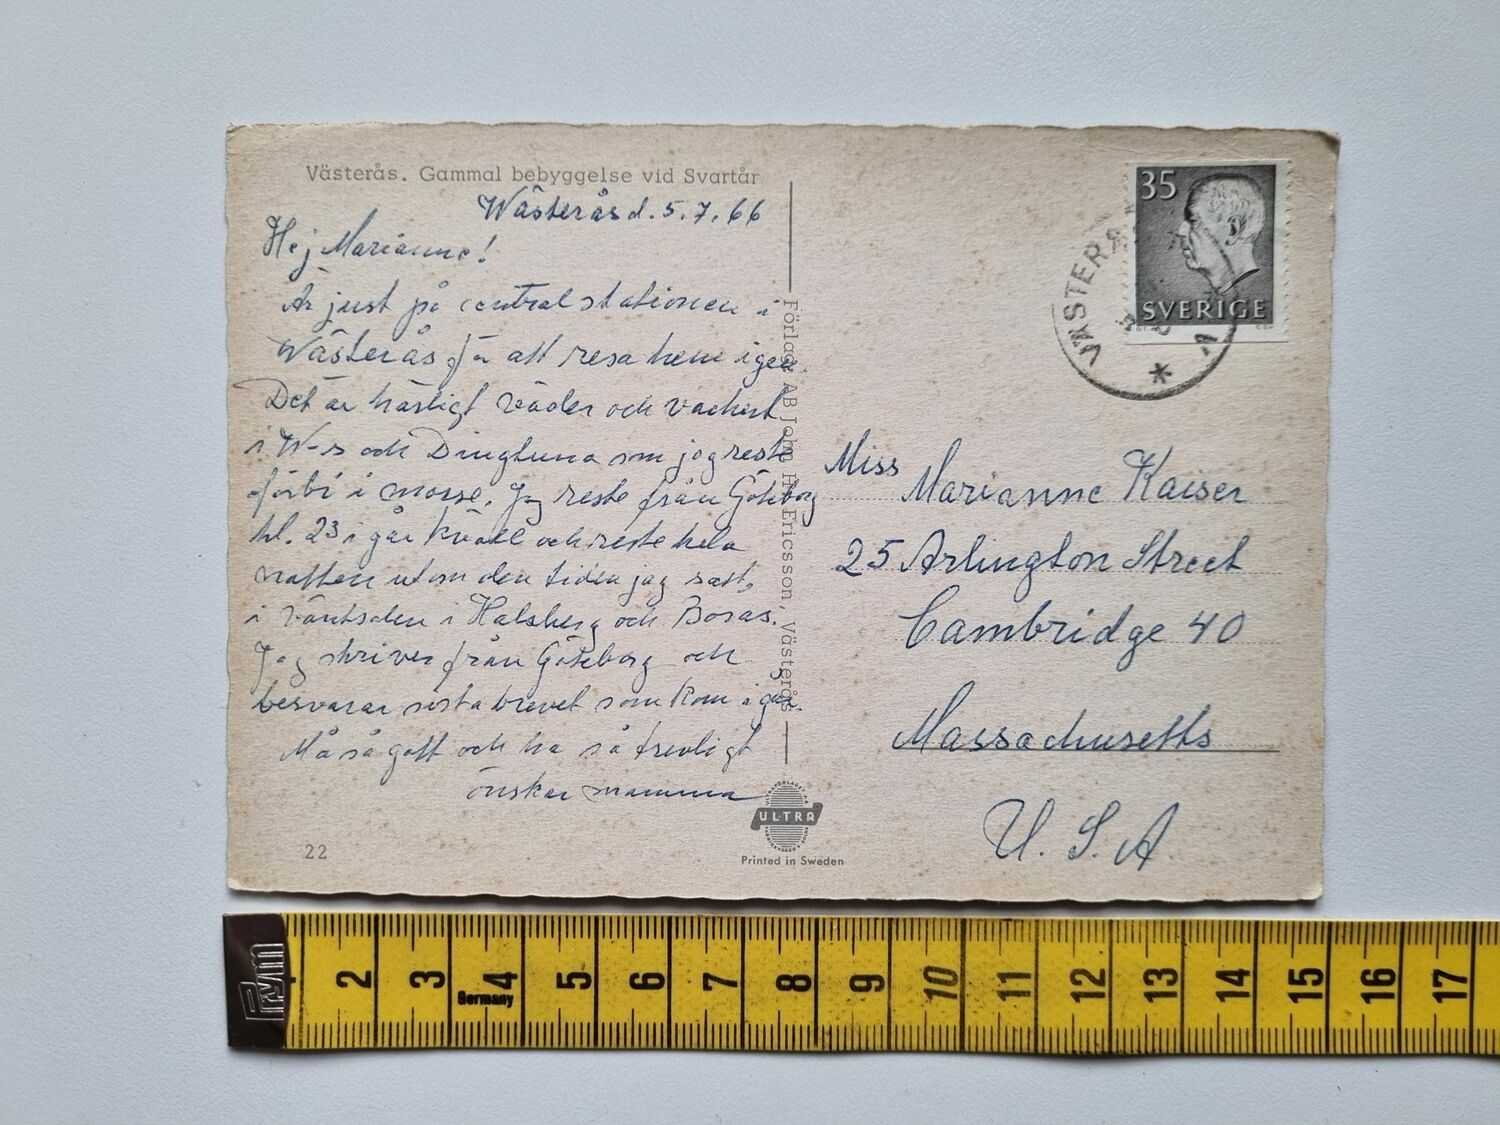 Västerås. Gammal bebyggelse vid Svartår
Wästerås d. 5.7.66
Hej Marianne!
Är just på centralstationen i
Wästerås för att resa hem igen.
Det är härligt väder och vackert
i W-s och Dingtuna som jag reste
förbi i morse. Jag reste från Göteborg
kl. 23 i går kväll och reste hela
natten utom den tiden jag satt
i väntsalen i Halsberg och Boras.
Jag skriver från Göteborg och
besvarar sista brevet som kom igår.
Må så gott och ha så trevligt
önskar mamma
22
Förlag: AB John Ericsson, Västerås
ULTRA
Printed in Sweden
35
SVERIGE
VÄSTERÅS
1
Miss Marianne Kaiser
25 Arlington Street
Cambridge 40
Massachusetts
U.S.A
Prym
Germany
2 3 4 5 6 7 8 9 10 11 12 13 14 15 16 17